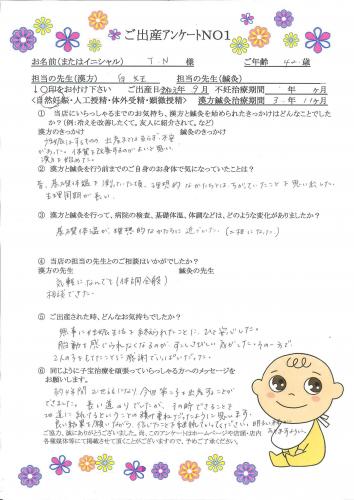 ご出産アンケートNO1
お名前(またはイニシャル) T.N 様 ご年齢 42 歳
担当の先生(漢方) 担当の先生(鍼灸)
↓○印をお付け下さい ご出産日 年 9月 不妊治療期間 年 ヶ月
<自然妊娠・人工授精・体外受精・顕微授精> 漢方鍼灸治療期間 3年 11ヶ月
① 当店にいらっしゃるまでのお気持ち、漢方と鍼灸を始められたきっかけはどんなことでしたか?(例:冷えを改善したくて。友人に紹介されて。など)
漢方のきっかけ 鍼灸のきっかけ
妊娠はするものの、出産までは至らず、不安
があった。体質を改善するのがよいと思い、
漢方を始めた。
② 漢方と鍼灸を行う前までのご自身のお身体で気になっていたことは?
昔、基礎体温を測っていた頃、理想的なかたちとはちがっていたことを思い出した。
生理周期が長い。
③ 漢方と鍼灸を行って、病院の検査、基礎体温、体調などは、どのような変化がありましたか?
基礎体温が、理想的なかたちに近づいた。(二相になった)
④ 当店の担当の先生とのご相談はいかがでしたか?
漢方の先生 鍼灸の先生
気軽になんでも(体調全般)
相談できた。
⑤ ご出産された時、どんなお気持ちでしたか?
無事に妊娠生活を終えられたことに、ひと安心した。
胎動を感じられなくなるのが、少しさびしい気がした。その一方で
2人の子をもてたことに感謝でいっぱいだった。
⑥ 同じように子宝治療を頑張っていらっしゃる方へのメッセージをお願いします。
約4年間お世話になり、今回第二子を出産することが
できました。長い道のりでしたが、その時できることを
地道に続けるということの積み重ねだったように思います。
良い結果を願いながら、
ご協力、誠にありがとうございます。尚、このアンケートはホームページや店頭・店内
各種媒体等にて掲載させて頂くことがございますので、予めご了承ください。